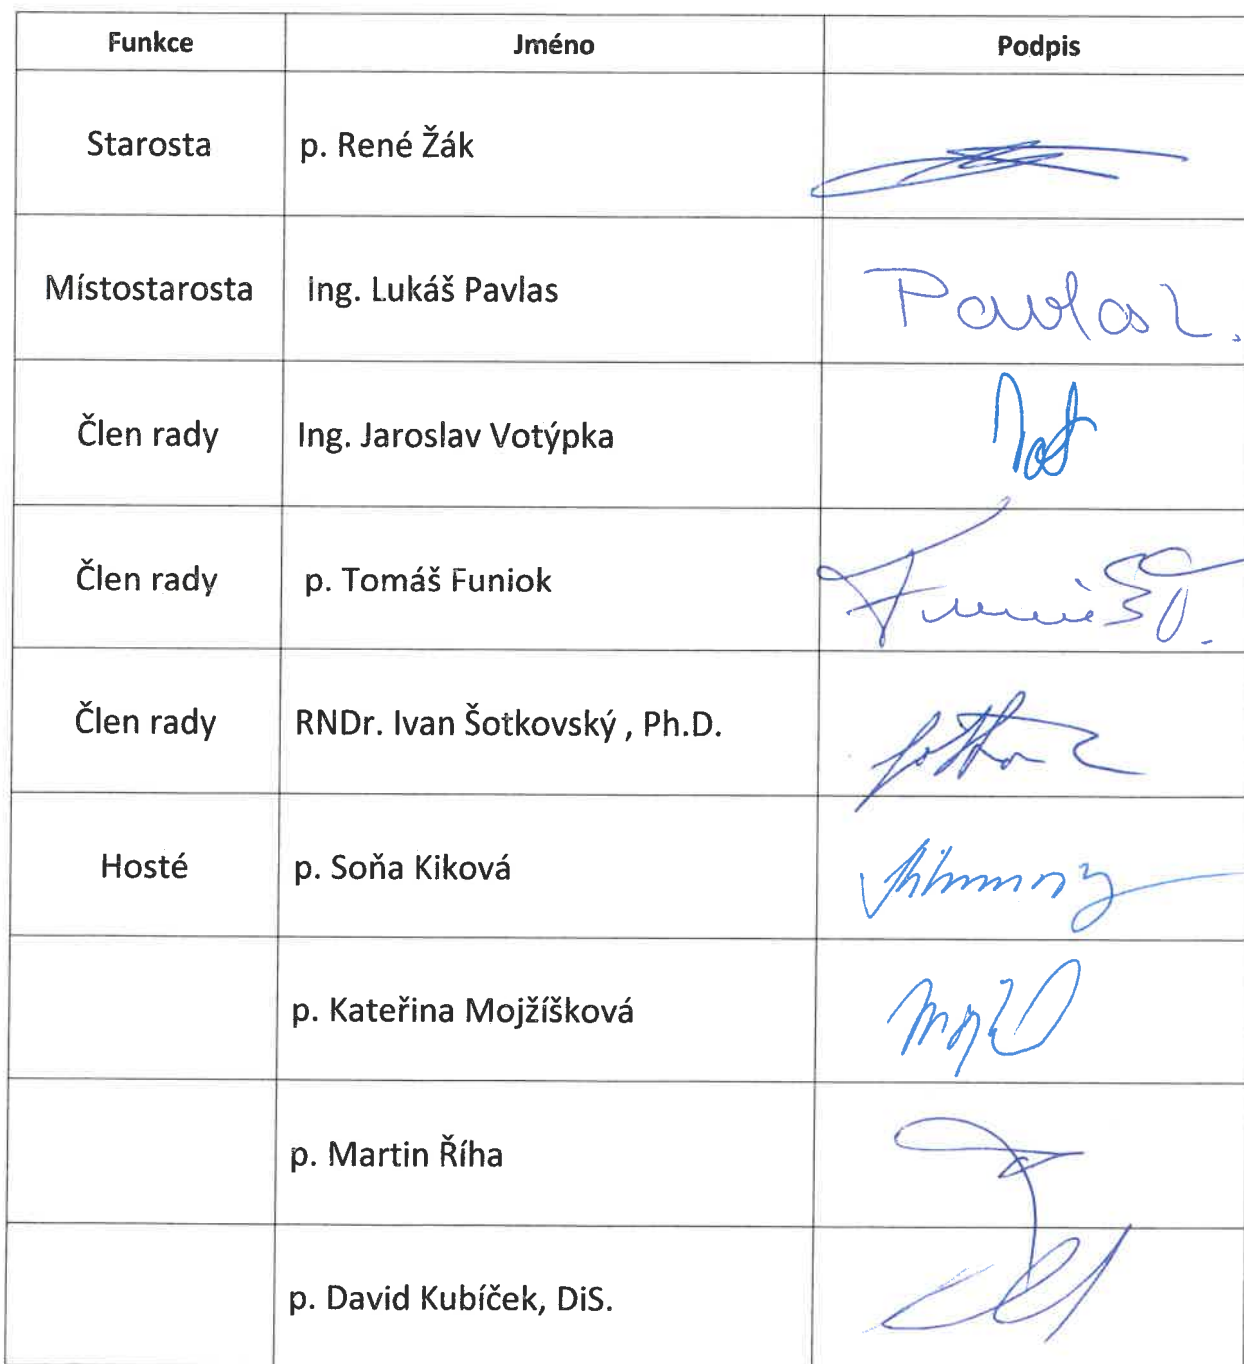 Funkce Jméno Podpis
Starosta p. René Žák
Místostarosta Ing. Lukáš Pavlas Pavlas L.
Člen rady Ing. Jaroslav Votýpka
Člen rady p. Tomáš Funiok
Člen rady RNDr. Ivan Šotkovský , Ph.D.
Hosté p. Soňa Kiková
p. Kateřina Mojžíšková
p. Martin Říha
p. David Kubíček, DiS.